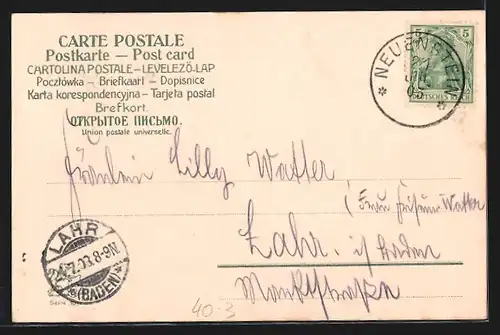 CARTE POSTALE
Postkarte — Post card
CARTOLINA POSTALE – LEVELEZŐ-LAP
Pocztówka – Briefkaart – Dopisnice
Karta korespondencyjna – Tarjeta postal
Brefkort.
ОТКРЫТОЕ ПИСЬМО.
Union postale universelle.
NEUENSTEIN
5 5
Fräulein Lilly Watter
(Frau Watter
Lahr i/ Baden
Marktstraße
LAHR
7.03.8-9N.
(BADEN)
40-3